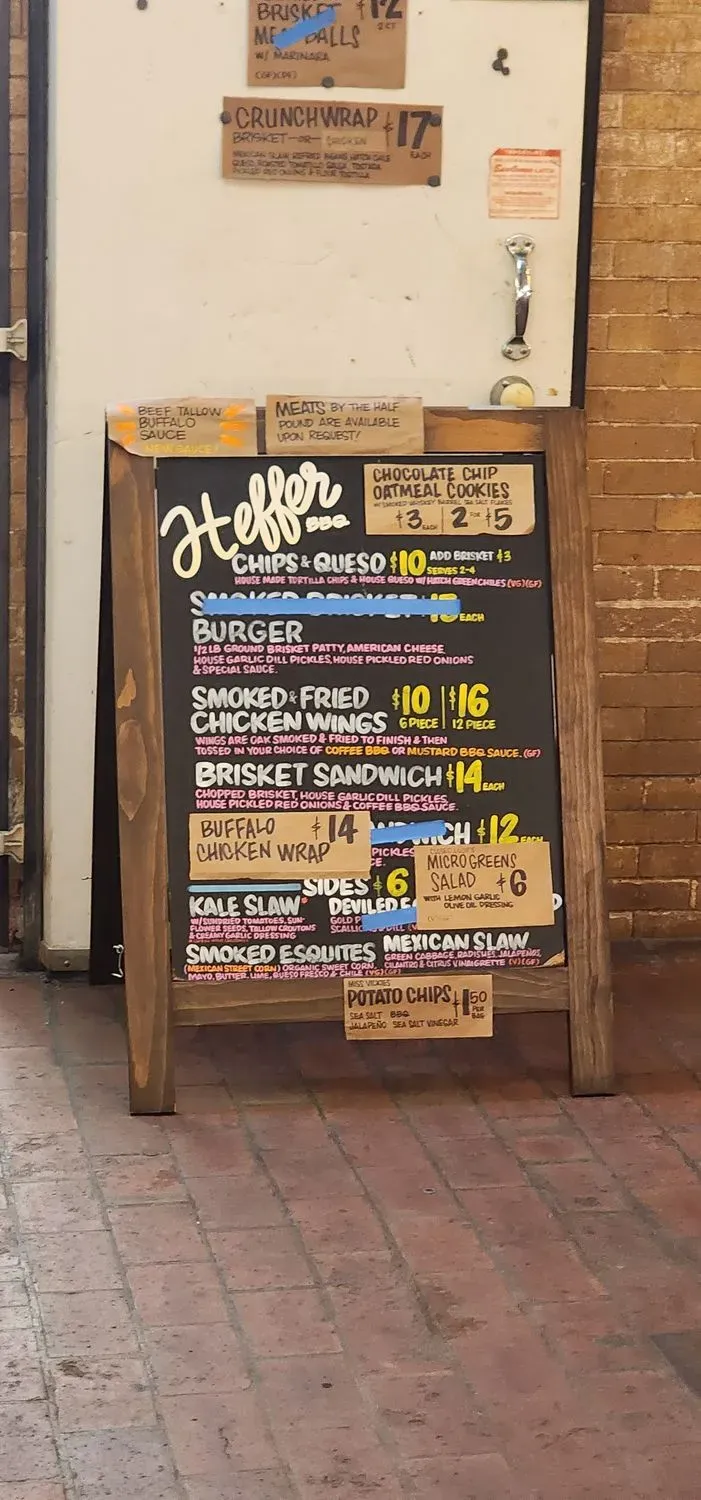 BRISKET $12
MEATBALLS 2 CT
W/ MARINARA
(GF)(DF)
CRUNCHWRAP $17
BRISKET -OR- CHICKEN EACH
MEXICAN SLAW, REFRIED BEANS, HATCH CHILE
QUESO, ROASTED TOMATILLO SALSA, TOSTADA,
PICKLED RED ONIONS & FLOUR TORTILLA
BEEF TALLOW
BUFFALO
SAUCE
NEW SAUCE!
MEATS BY THE HALF
POUND ARE AVAILABLE
UPON REQUEST!
Heffer
BBQ
CHOCOLATE CHIP
OATMEAL COOKIES
W/ SMOKED WHISKEY BARREL SEA SALT FLAKES
$3 EACH | 2 FOR $5
CHIPS & QUESO $10 ADD BRISKET $3
SERVES 2-4
HOUSE MADE TORTILLA CHIPS & HOUSE QUESO W/ HATCH GREEN CHILES (VG)(GF)
SMOKED BRISKET EACH
BURGER
1/2 LB GROUND BRISKET PATTY, AMERICAN CHEESE,
HOUSE GARLIC DILL PICKLES, HOUSE PICKLED RED ONIONS
& SPECIAL SAUCE.
SMOKED & FRIED $10 | $16
CHICKEN WINGS 6 PIECE | 12 PIECE
WINGS ARE OAK SMOKED & FRIED TO FINISH & THEN
TOSSED IN YOUR CHOICE OF COFFEE BBQ OR MUSTARD BBQ SAUCE. (GF)
BRISKET SANDWICH $14 EACH
CHOPPED BRISKET, HOUSE GARLIC DILL PICKLES,
HOUSE PICKLED RED ONIONS & COFFEE BBQ SAUCE.
BUFFALO $14
CHICKEN WRAP
CH $12 EACH
PICKLES
CE.
MICROGREENS
SALAD $6
WITH LEMON GARLIC
OLIVE OIL DRESSING
SIDES $6
KALE SLAW
W/ SUNDRIED TOMATOES, SUN-
FLOWER SEEDS, TALLOW CROUTONS
& CREAMY GARLIC DRESSING
DEVILED
GOLD P
SCALLIO DILL
SMOKED ESQUITES
(MEXICAN STREET CORN) ORGANIC SWEET CORN,
MAYO, BUTTER, LIME, QUESO FRESCO & CHILE (VG)(GF)
MEXICAN SLAW
GREEN CABBAGE, RADISHES, JALAPEÑOS,
CILANTRO & CITRUS VINAIGRETTE (V)(GF)
MISS VICKIES
POTATO CHIPS $1.50
SEA SALT BBQ PER
JALAPEÑO SEA SALT VINEGAR BAG